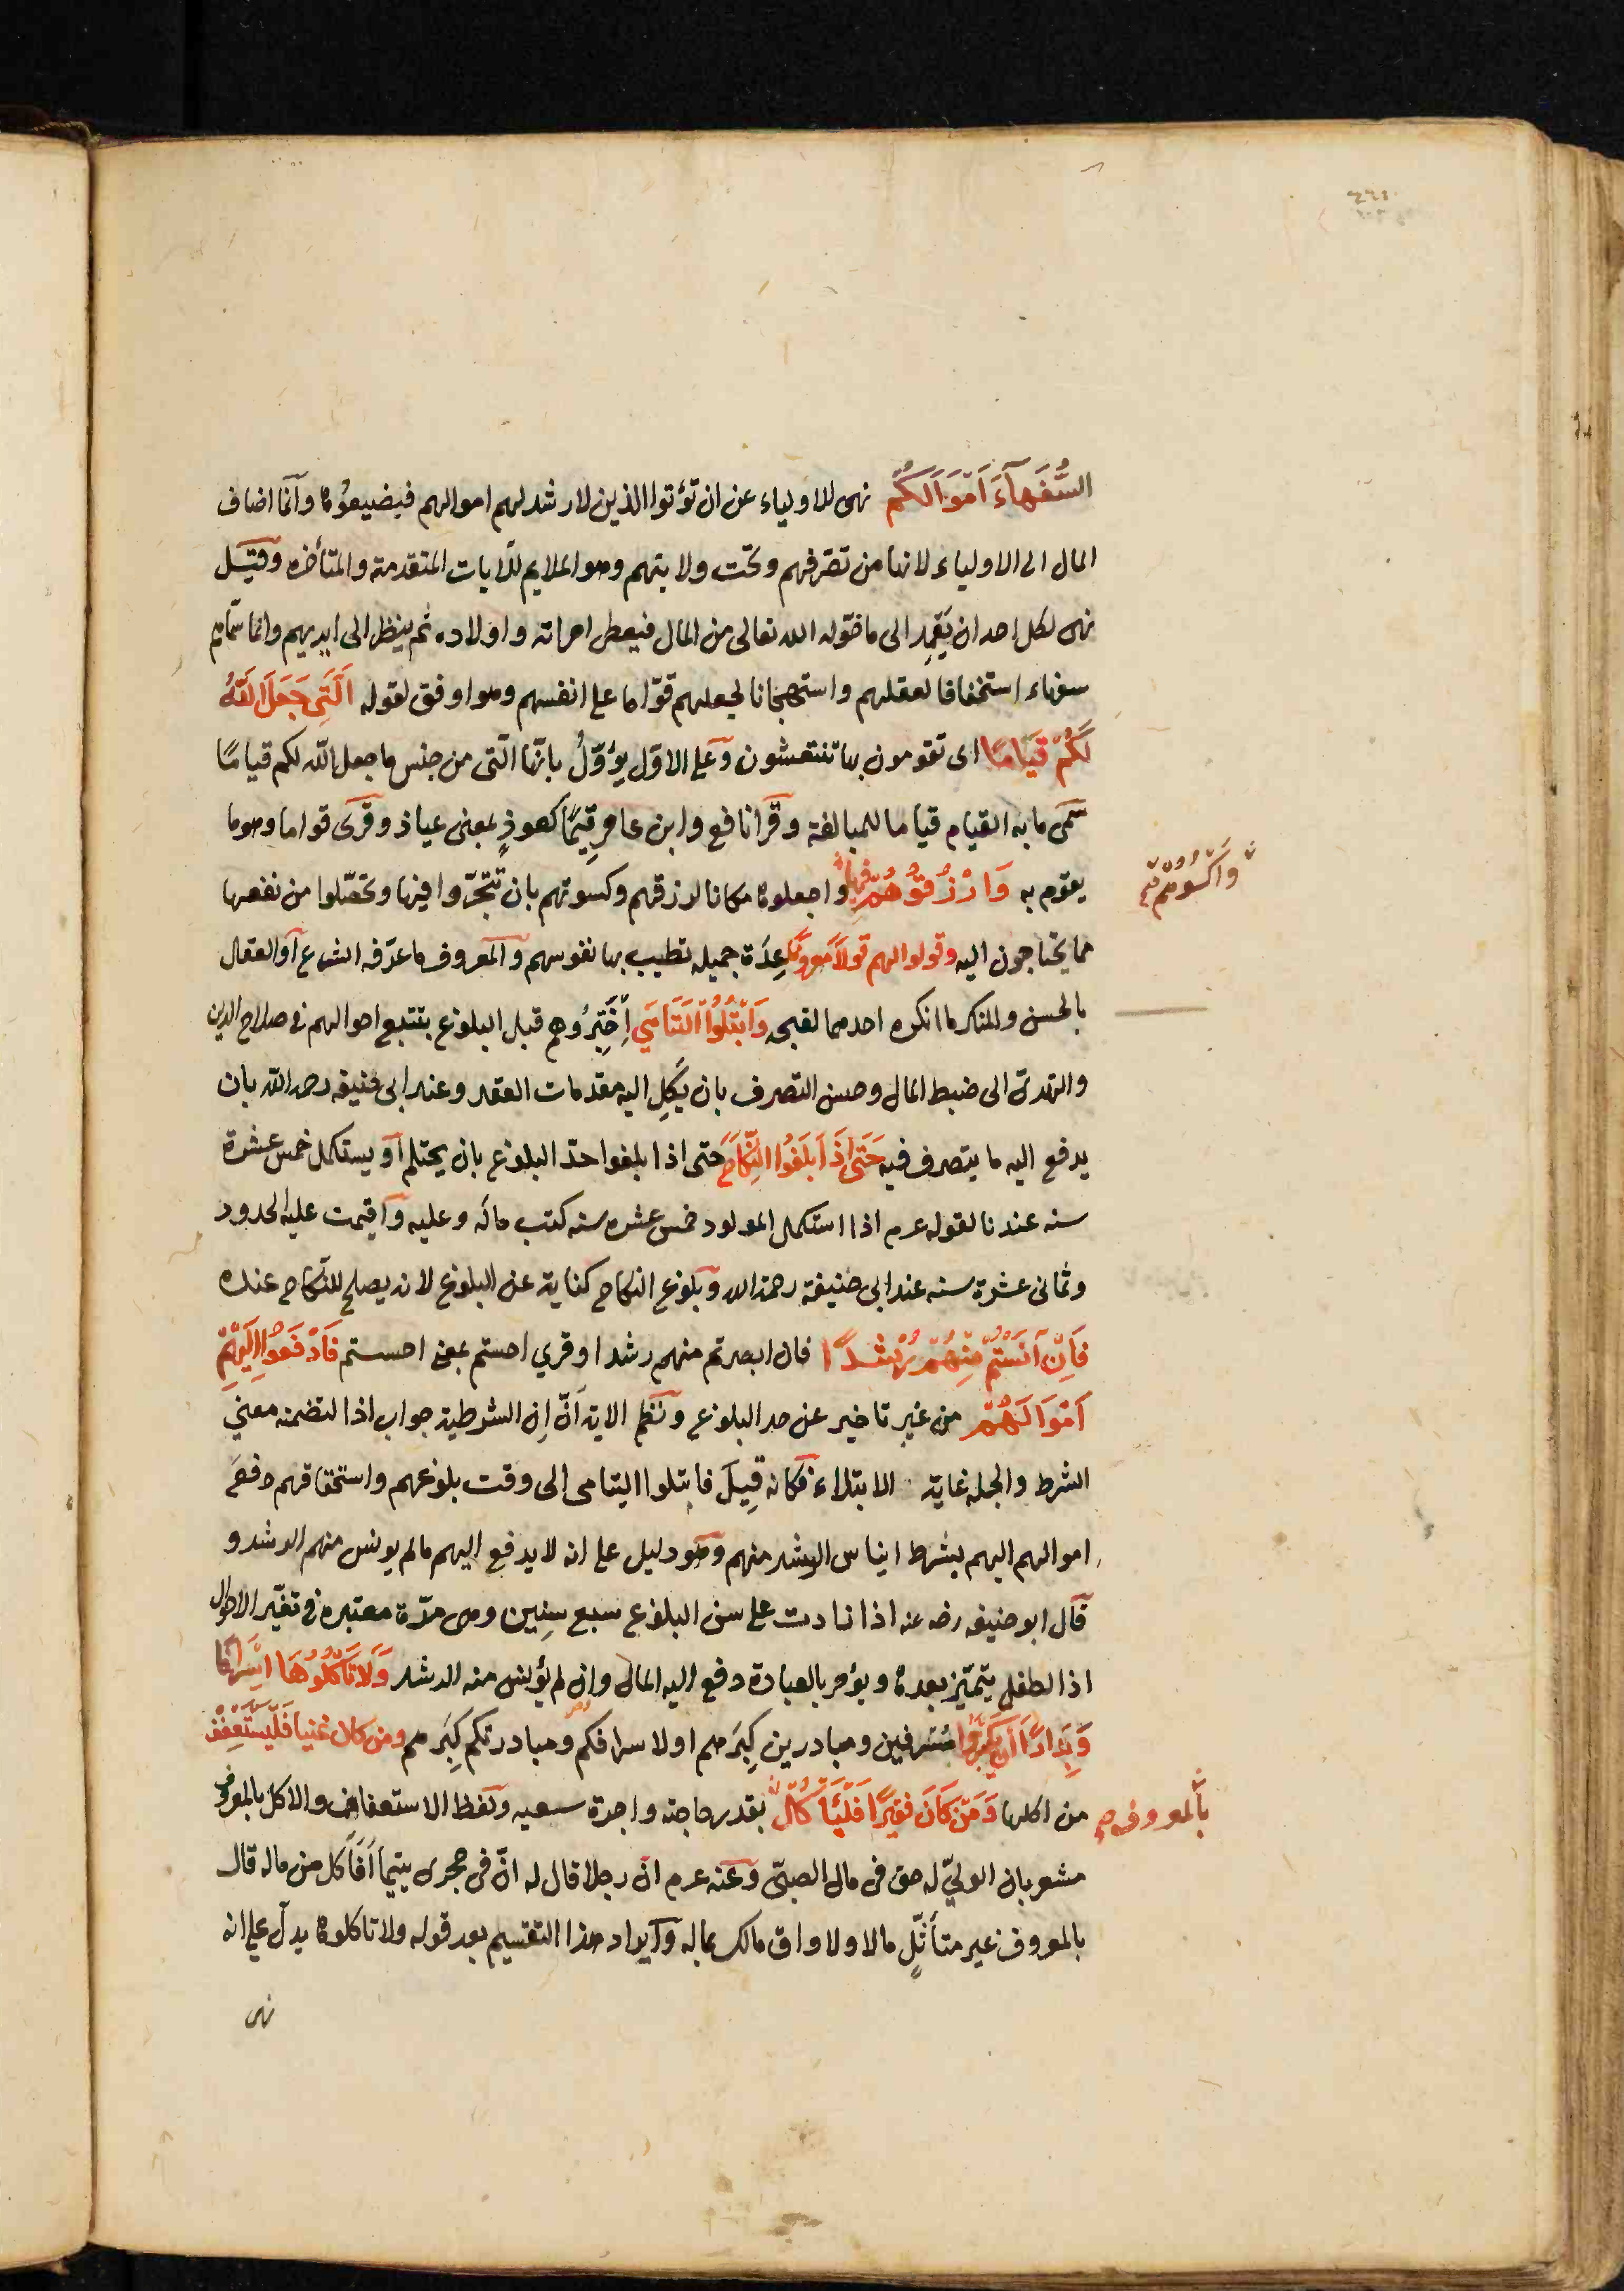 السُّفَهَآءَ اَمْوَالَكُمُ نهى للاولياء عن ان تؤتوا الذين لا رشد لهم اموالهم فيضيعوها وانما اضاف
المال الى الاولياء لانها من تصرفهم وتحت ولايتهم وهو الملايم للآيات المتقدمة والمتأخره وقيل
نهى لكل احد ان يَعْمِد الى ما خوّله الله تعالى من المال فيعطى امراته واولاده ثم ينظر الى ايديهم وانما سمّاهم
سفهاء استخفافا لعقلهم واستهجانا لجعلهم قوّاما على انفسهم وهو اوفق لقوله اَلَّتِى جَعَلَ اللَّهُ
لَكُمْ قِيَامًا اى تقومون بها تنتعشون وعلى الاوّل يؤوّلُ بانّها الّتى من جنس ما جعل الله لكم قيامًا
سمّى ما به القيام قياما للمبالغة وقرا نافع وابن عامر قِيَمًا كعوذٍ بمعنى عياذ وقرى قواما وهو ما
يقوم به وَارْزُقُوهُمْ فِيهَا واجعلوها مكانا لرزقهم وكسوتهم بان تتّجروا فيها وتحصّلوا من نفعها
وَاكْسُوهُمْ
مما يحتاجون اليه وقولوا لهم قولا معروفا عِدَة جميله تطيب بها نفوسهم والمعروف ما عرّفه الشرع او العقل
بالحسن والمنكر ما انكره احدهما لقبحه وَابْتَلُوا الْيَتَامَى اِخْتَبِرُوهم قبل البلوغ بتتبع احوالهم فى صلاح الدين
والتهدى الى ضبط المال وحسن التصرف بان يَكِل اليه مقدمات العقد وعند ابى حنيفه رحمه الله بان
يدفع اليه ما يتصرف فيه حَتَّى اِذَا بَلَغُوا النِّكَاحَ حتى اذا بلغوا حدّ البلوغ بان يحتلم او يستكمل خمس عشرة
سنه عندنا لقوله عم اذا استكمل المولود خمس عشره سنه كتب ماله وعليه واقيمت عليه الحدود
وثمانى عشرة سنه عند ابى حنيفة رحمه الله وبلوغ النكاح كناية عن البلوغ لانه يصلح للنكاح عنده
فَاِنْ آنَسْتُمْ مِنْهُمْ رُشْدًا فان ابصرتم منهم رشدا وقري احستم بمعنى احسستم فَادْفَعُوا اِلَيْهِمْ
اَمْوَالَهُمْ من غير تاخير عن حد البلوغ ونظم الاية اَنَّ اِن الشرطية جواب اذا لتضمنه معنى
الشرط والجمله غاية الابتلاء فكانه قيل فابتلوا اليتامى الى وقت بلوغهم واستحقاقهم دفعَ
اموالهم اليهم بشرط ايناس الرشد منهم وهو دليل على انه لا يدفع اليهم مالم يونس منهم الرشد و
قال ابو حنيفه رضه عنه اذا زادت على سن البلوغ سبع سِنين وهى مدّة معتبره فى تغيّر الاحوال
اذا لطفل يتميّز بعدها ويؤمر بالعبادة دفع اليه المال وان لم يؤنس منه الرشد وَلَا تَأْكُلُوهَا اِسْرَافًا
وَبِدَارًا اَنْ يَكْبَرُوا مُسْرفين ومبادرين كِبَرهم او لاسرافكم ومبادرتكم كِبَرهم ومن كان غنيا فَلْيَسْتَعْفِفْ
من اكلها وَمَنْ كَانَ فَقِيرًا فَلْيَأْكُلْ بقدر حاجته واجرة سعيه ولفظ الاستعفاف والاكل بالمعروف
بالمعروف
مشعر بان الوليّ له حق فى مال الصبىّ وعنه عم انّ رجلا قال له انّ فى حجرى يتيما اَفَآكل من ماله قال
بالمعروف غير متأثّلٍ مالا ولا واق مالك بماله وايراد هذا التقسيم بعد قوله ولا تاكلوها يدلّ على انه
نهى